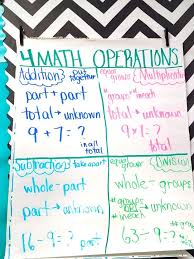 4 MATH OPERATIONS
Addition put together
part + part
total → unknown
9 + 7 = ?
in all
total
equal groups Multiplication
#groups × #in each
total → unknown
total
Subtraction take apart
whole - part
part → unknown
16 - 9 = ?
equal groups Division
whole ÷ groups
# in each → unknown
63 ÷ 9 = ?